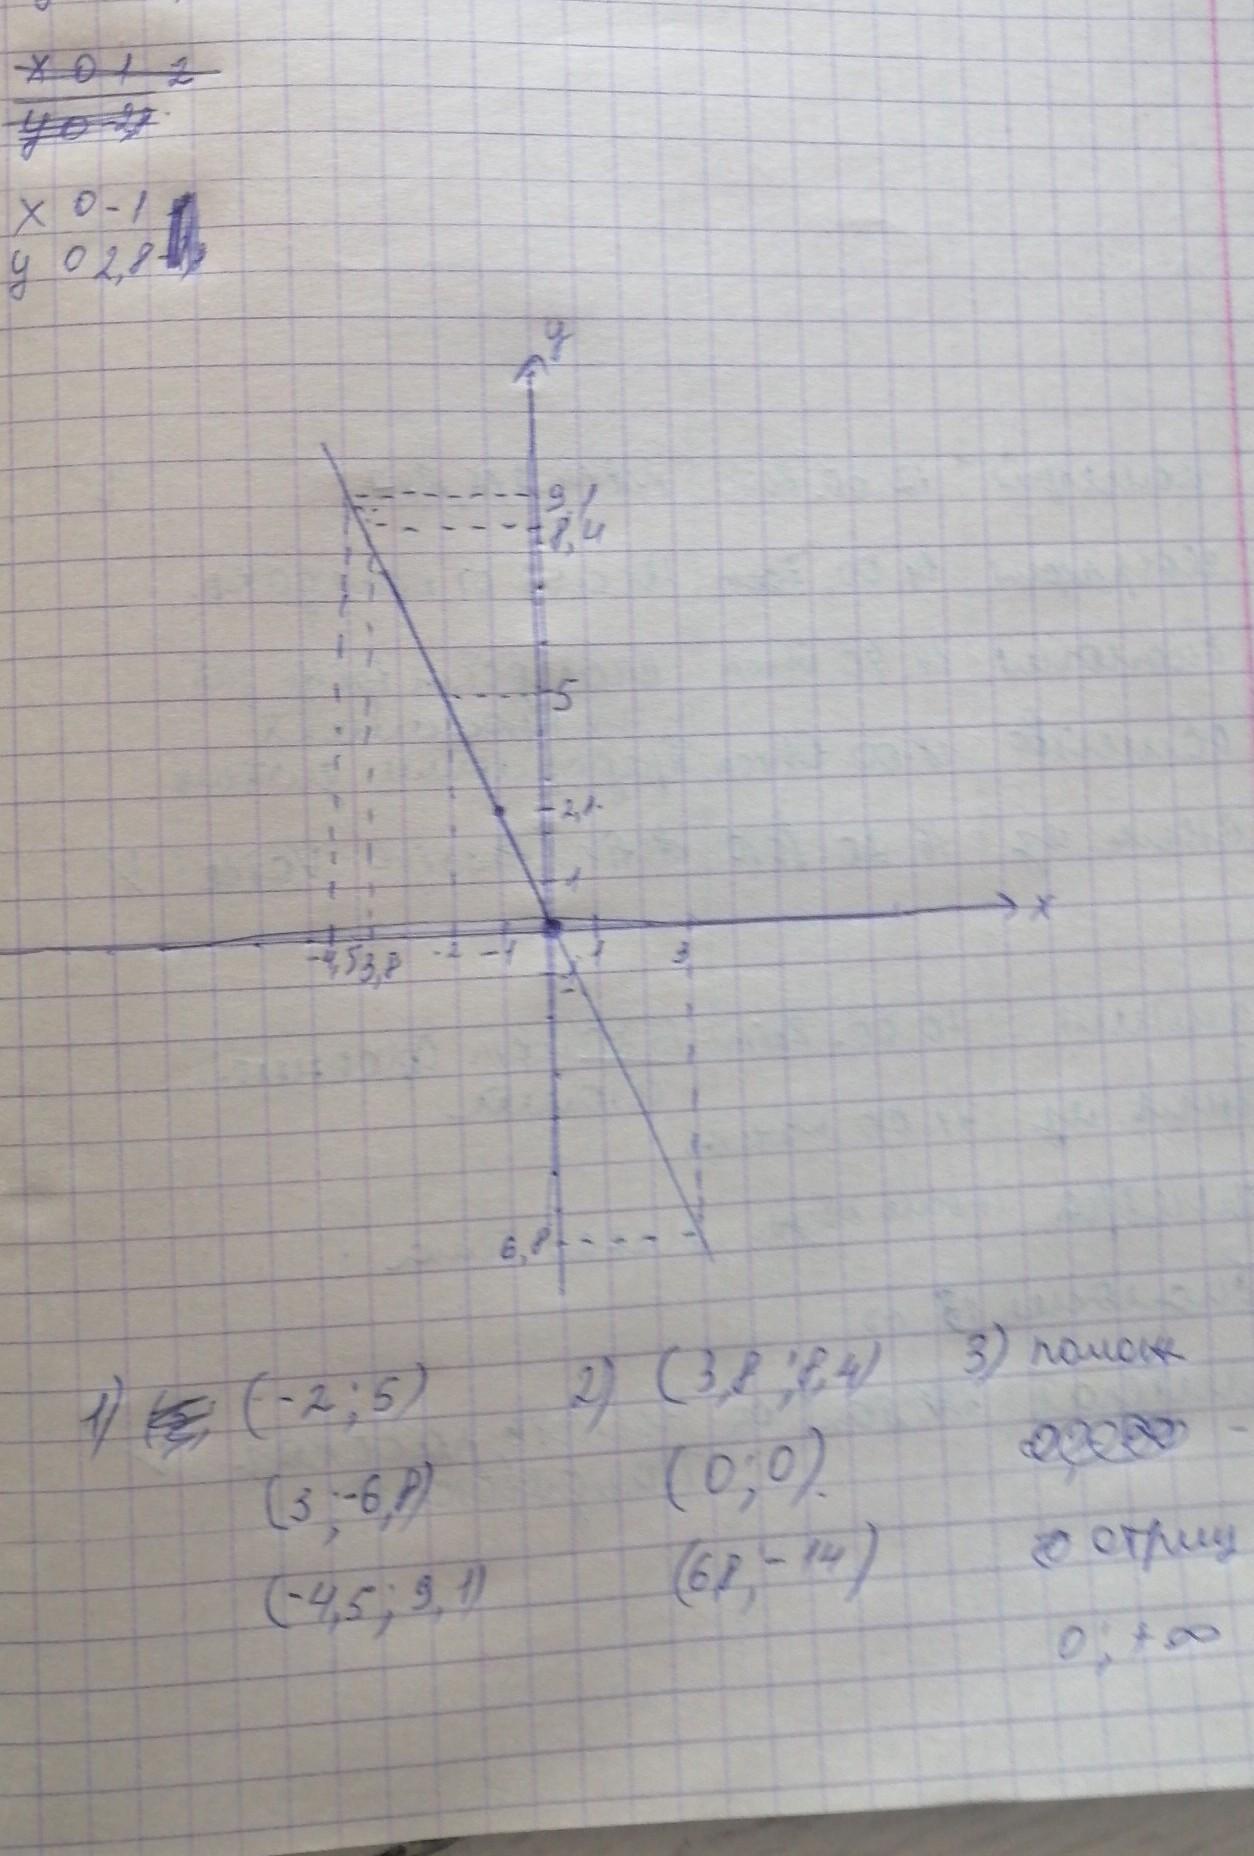 x 0 1 2
y 0 -2,
x 0 -1
y 0 2,8
y
9,1
8,4
5
2,1
1
x
-4,5 3,8 -2 -1 1 3
6,8
1) (-2;5) 2) (3,8;8,4) 3) полож
(3;-6,8) (0;0)
(-4,5;9,1) (6,8;-14) отриц
0;+∞